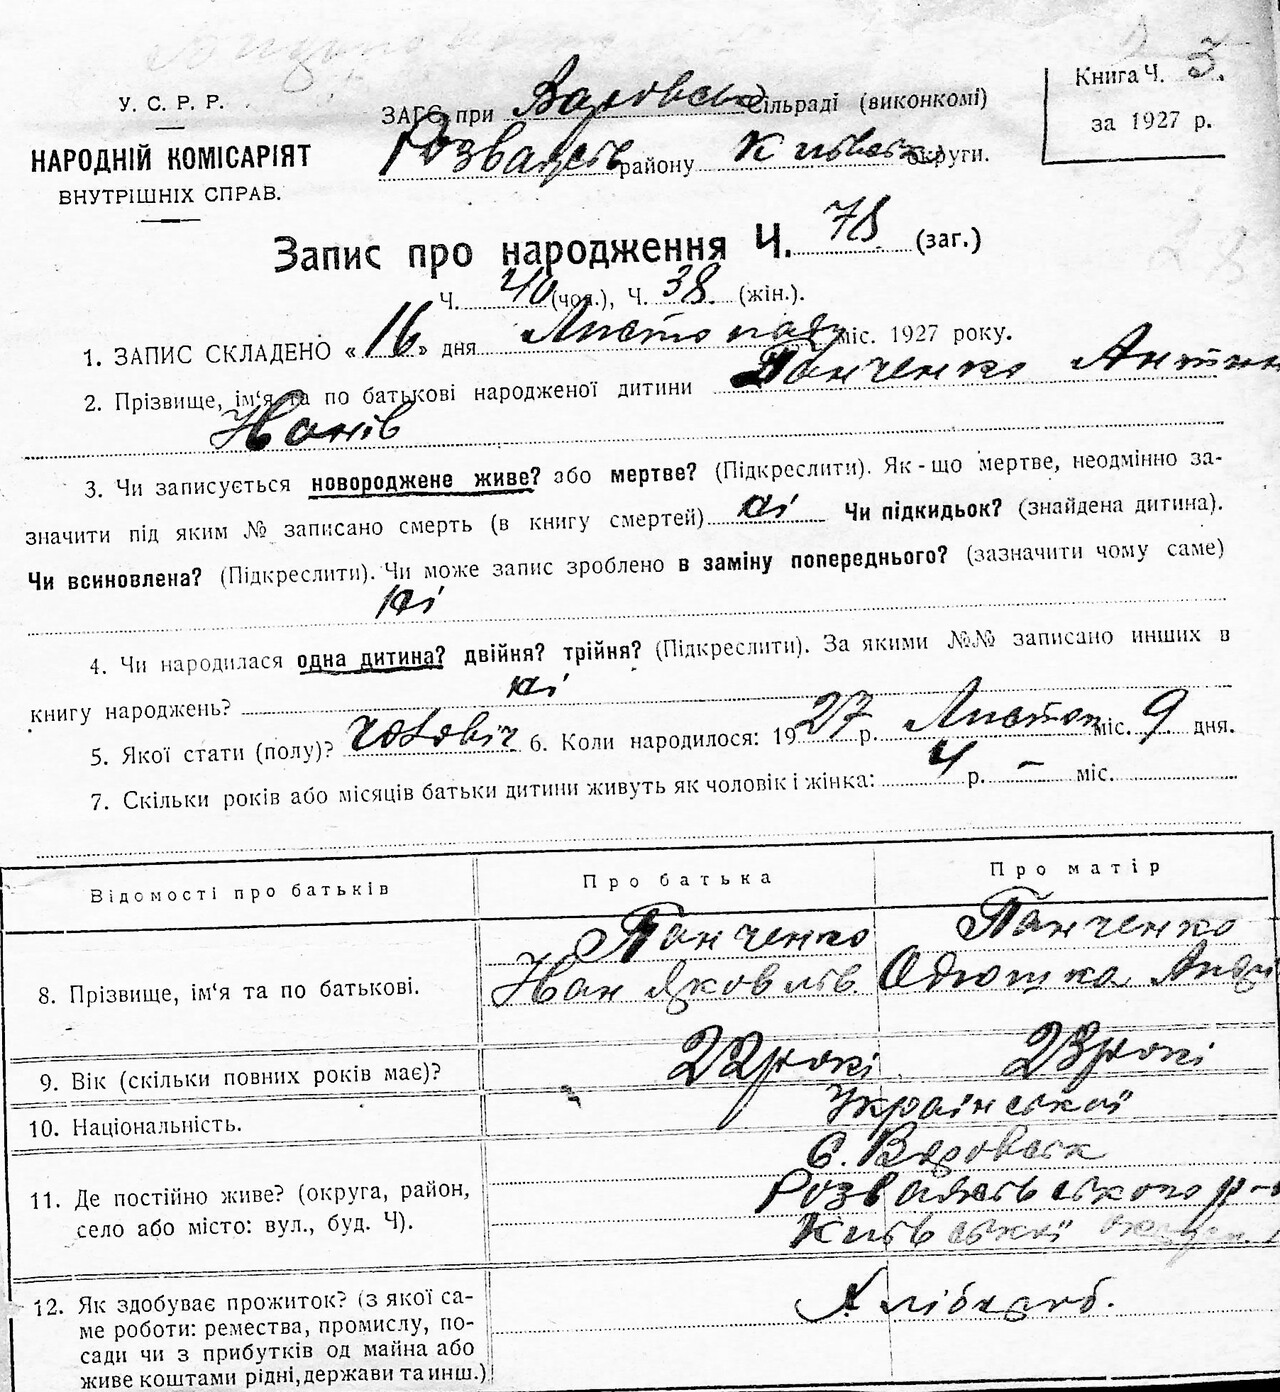 У. С. Р. Р.
НАРОДНІЙ КОМІСАРІЯТ
ВНУТРІШНІХ СПРАВ.
ЗАГС при Варовськ сільраді (виконкомі)
Розважів району Київськ округи.
Книга Ч. 3.
за 1927 р.
Запис про народження Ч. 78 (заг.)
Ч. 40 (чол.), Ч. 38. (жін.).
1. ЗАПИС СКЛАДЕНО «16» дня Листопаду міс. 1927 року.
2. Прізвище, ім'я та по батькові народженої дитини Панченко Антін
3. Чи записується новороджене живе? або мертве? (Підкреслити). Як-що мертве, неодмінно за-
значити під яким № записано смерть (в книгу смертей) ні Чи підкидьок? (знайдена дитина).
Чи всиновлена? (Підкреслити). Чи може запис зроблено в заміну попереднього? (зазначити чому саме)
ні
4. Чи народилася одна дитина? двійня? трійня? (Підкреслити). За якими №№ записано инших в
книгу народжень? ні
5. Якої стати (полу)? чоловіч 6. Коли народилося: 1927 р. Листоп міс. 9 дня.
7. Скільки років або місяців батьки дитини живуть як чоловік і жінка: 4 р. – міс.
Відомості про батьків
Про батька
Про матір
8. Прізвище, ім'я та по батькові.
Панченко
Яковлів.
Панченко
Андрі
9. Вік (скільки повних років має)?
22 рокі
23 рокі
10. Національність.
Української
11. Де постійно живе? (округа, район,
село або місто: вул., буд. Ч).
с. Варовськ
Розважівського р-
Київської округи
12. Як здобуває прожиток? (з якої са-
ме роботи: ремества, промислу, по-
сади чи з прибутків од майна або
живе коштами рідні, держави та инш.)
Хлібороб.